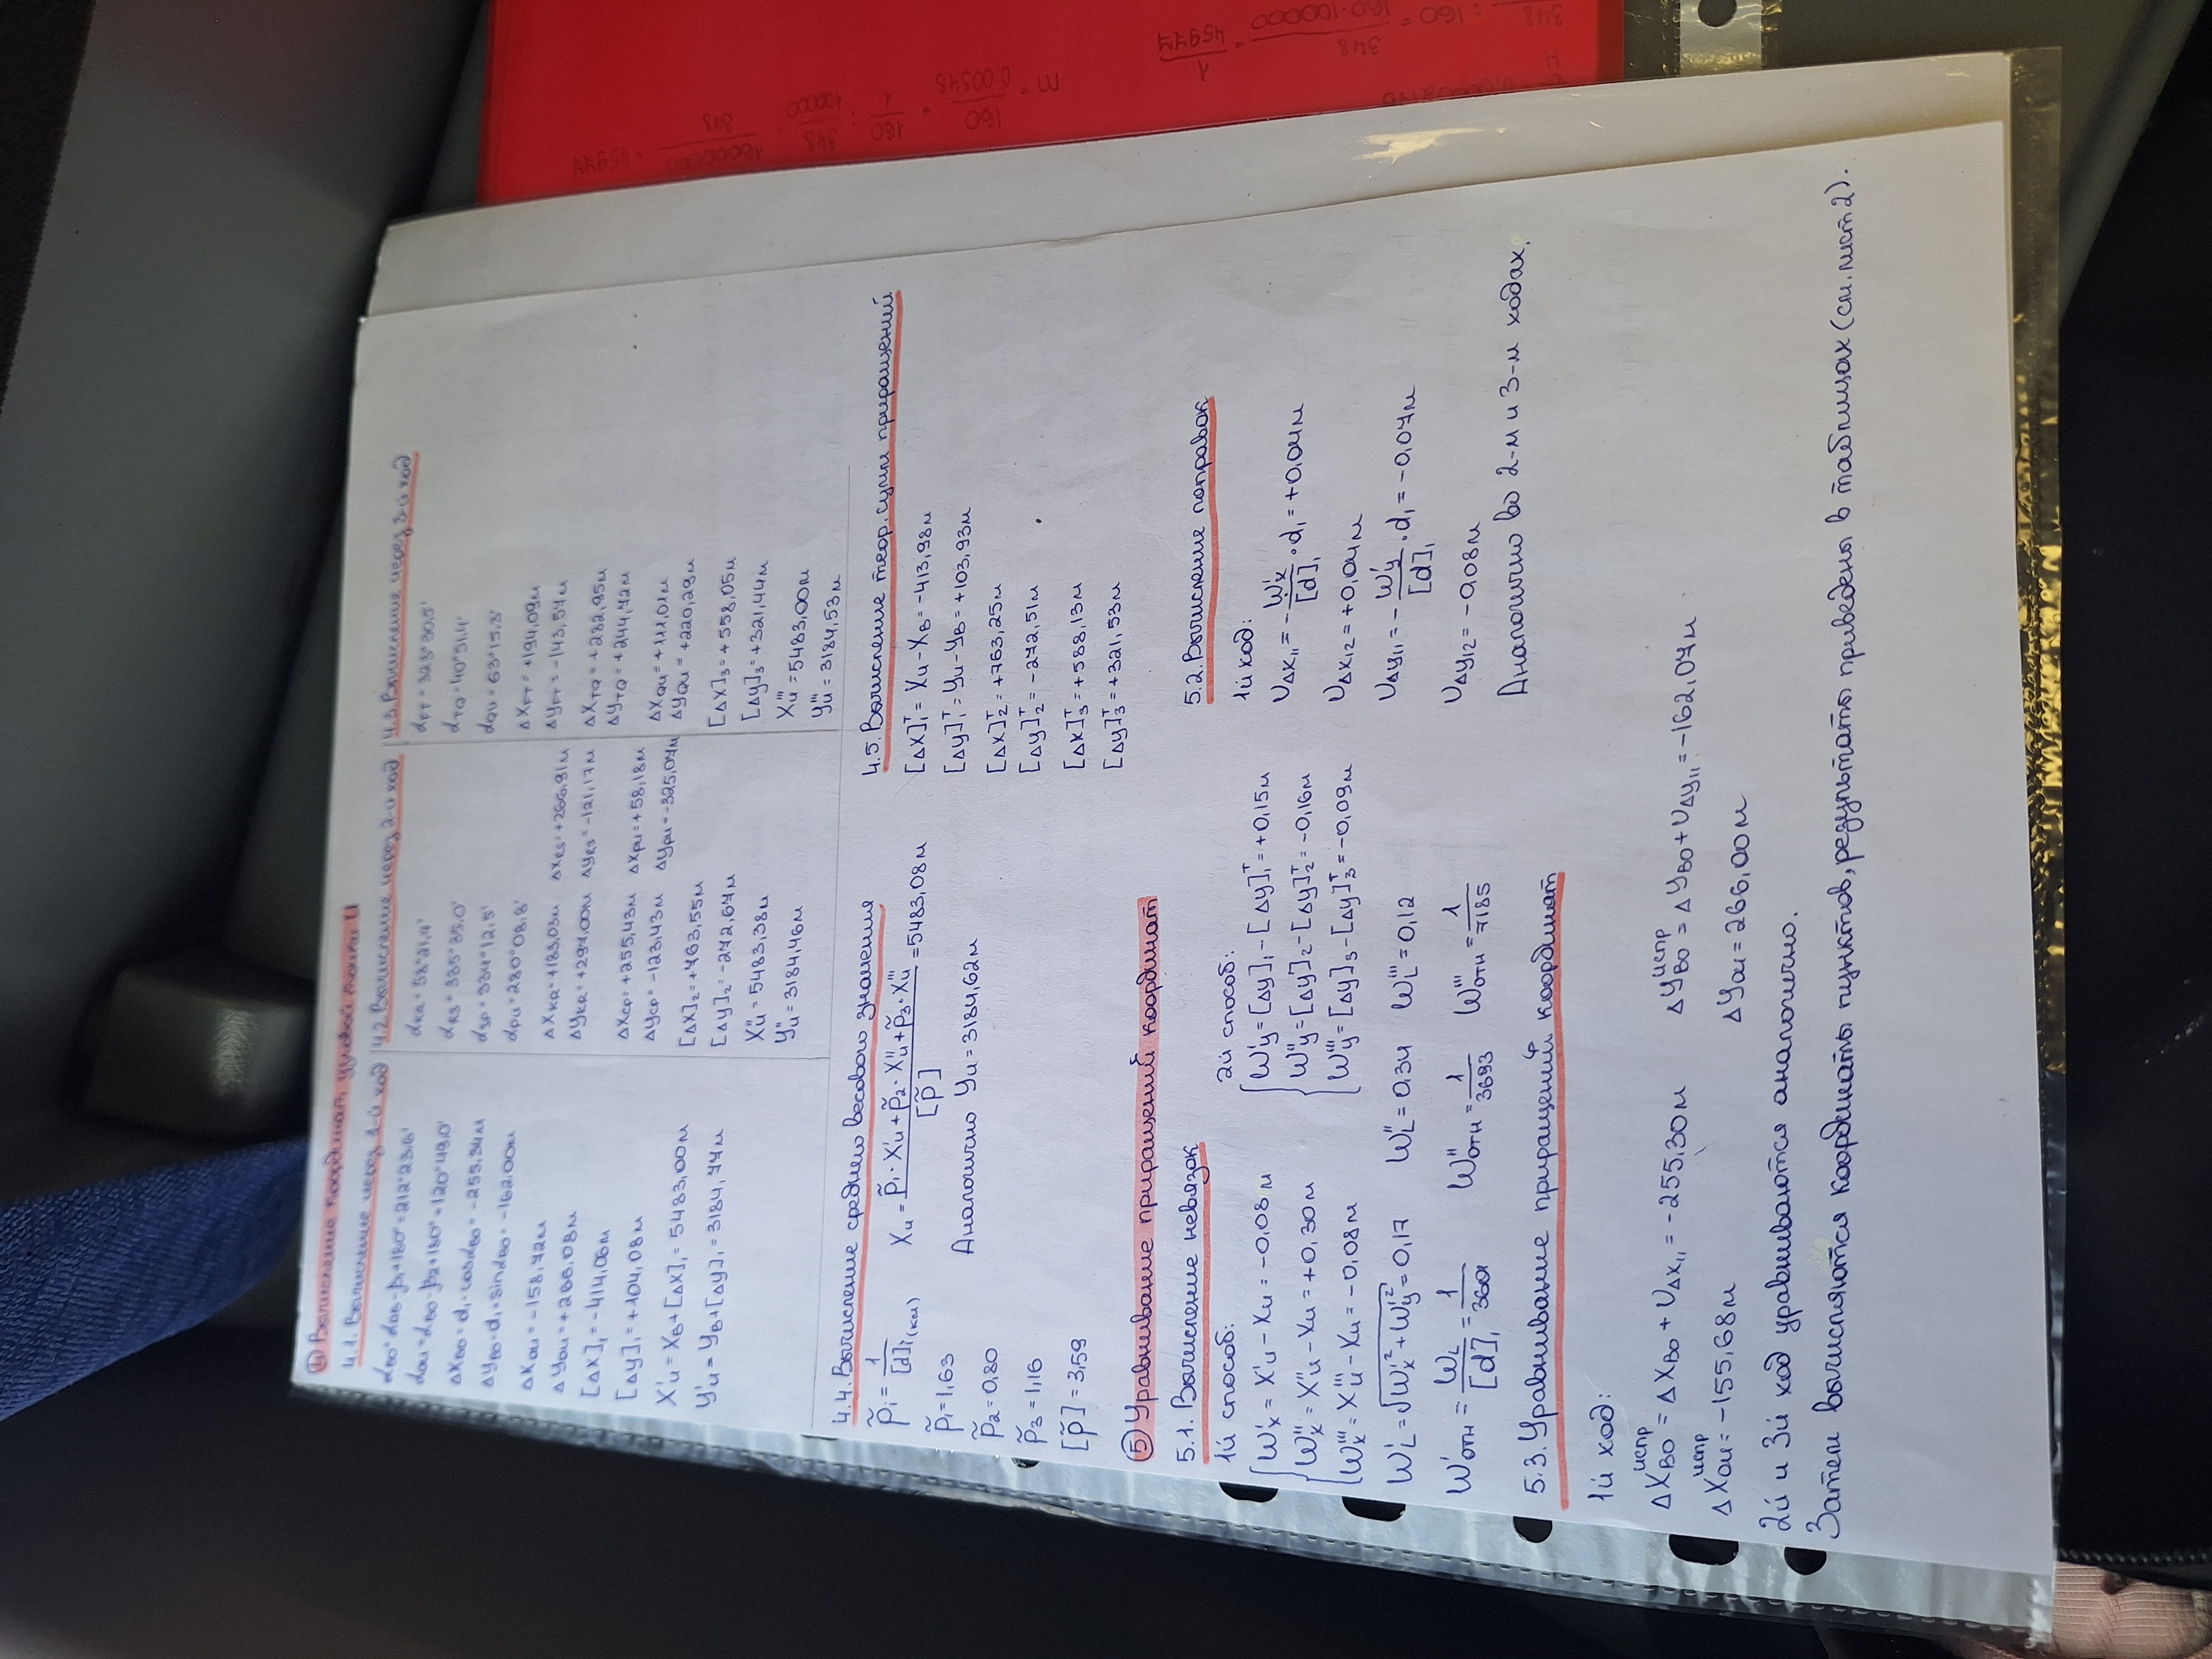 ④ Вычисление координат узловой точки U
4.1. Вычисление через 1-й ход
αBO = αAB - β1 + 180° = 212°23,6'
αOU = αBO - β2 + 180° = 120°49,0'
ΔXBO = d1 · cosαBO = -255,34м
ΔYBO = d1 · sinαBO = -162,00м
ΔXOU = -158,72м
ΔYOU = +266,08м
[ΔX]1 = -414,06м
[ΔY]1 = +104,08м
X'U = XB + [ΔX]1 = 5483,00м
Y'U = YB + [ΔY]1 = 3184,77м
4.2. Вычисление через 2-й ход
αKR = 58°21,4'
αRS = 335°35,0'
αSP = 334°12,5'
αPU = 280°08,8'
ΔXKR = +183,03м ΔXRS = +266,91м
ΔYKR = +297,00м ΔYRS = -121,17м
ΔXCP = +255,43м ΔXPU = +58,18м
ΔYCP = -123,43м ΔYPU = -325,04м
[ΔX]2 = +763,55м
[ΔY]2 = -272,67м
X''U = 5483,38м
Y''U = 3184,46м
4.3. Вычисление через 3-й ход
αFT = 323°30,5'
αTQ = 40°51,4'
αQU = 63°15,3'
ΔXFT = +194,09м
ΔYFT = -143,57м
ΔXTQ = +282,95м
ΔYTQ = +244,72м
ΔXQU = +111,01м
ΔYQU = +220,29м
[ΔX]3 = +558,05м
[ΔY]3 = +321,44м
X'''U = 5483,00м
Y'''U = 3184,53м
4.4. Вычисление среднего весового значения
p̃i = 1/[d]i(км)
p̃1 = 1,63
p̃2 = 0,80
p̃3 = 1,16
[p̃] = 3,59
XU = (p̃1 · X'U + p̃2 · X''U + p̃3 · X'''U)/[p̃] = 5483,08м
Аналогично YU = 3184,62м
4.5. Вычисление теор. сумм приращений
[ΔX]1ᵀ = XU - XB = -413,98м
[ΔY]1ᵀ = YU - YB = +103,93м
[ΔX]2ᵀ = +763,25м
[ΔY]2ᵀ = -272,51м
[ΔX]3ᵀ = +588,13м
[ΔY]3ᵀ = +321,53м
⑤ Уравнивание приращений координат
5.1. Вычисление невязок
1й способ:
W'x = X'U - XU = -0,08м
W''x = X''U - XU = +0,30м
W'''x = X'''U - XU = -0,08м
2й способ:
W'y = [ΔY]1 - [ΔY]1ᵀ = +0,15м
W''y = [ΔY]2 - [ΔY]2ᵀ = -0,16м
W'''y = [ΔY]3 - [ΔY]3ᵀ = -0,09м
W'L = √(W'x² + W'y²) = 0,17 W''L = 0,34 W'''L = 0,12
W'отн = WL/[d]1 = 1/3601 W''отн = 1/3693 W'''отн = 1/7185
5.2. Вычисление поправок
1й ход:
UΔX11 = - W'x/[d]1 · d1 = +0,04м
UΔX12 = +0,04м
UΔY11 = - W'y/[d]1 · d1 = -0,07м
UΔY12 = -0,08м
Аналогично во 2-м и 3-м ходах.
5.3. Уравнивание приращений координат
1й ход:
ΔXBOиспр = ΔXBO + UΔX11 = -255,30м ΔYBOиспр = ΔYBO + UΔY11 = -162,07м
ΔXOUиспр = -155,68м ΔYOU = 266,00м
2й и 3й ход уравниваются аналогично.
Затем вычисляются координаты пунктов, результаты приведены в таблицах (см. лист 2).
m = 160/0,00348 = 160/1 : 348/100000 = 16000000/348 = 45977
348 : 160 = 348/160·100000 = 1/45977